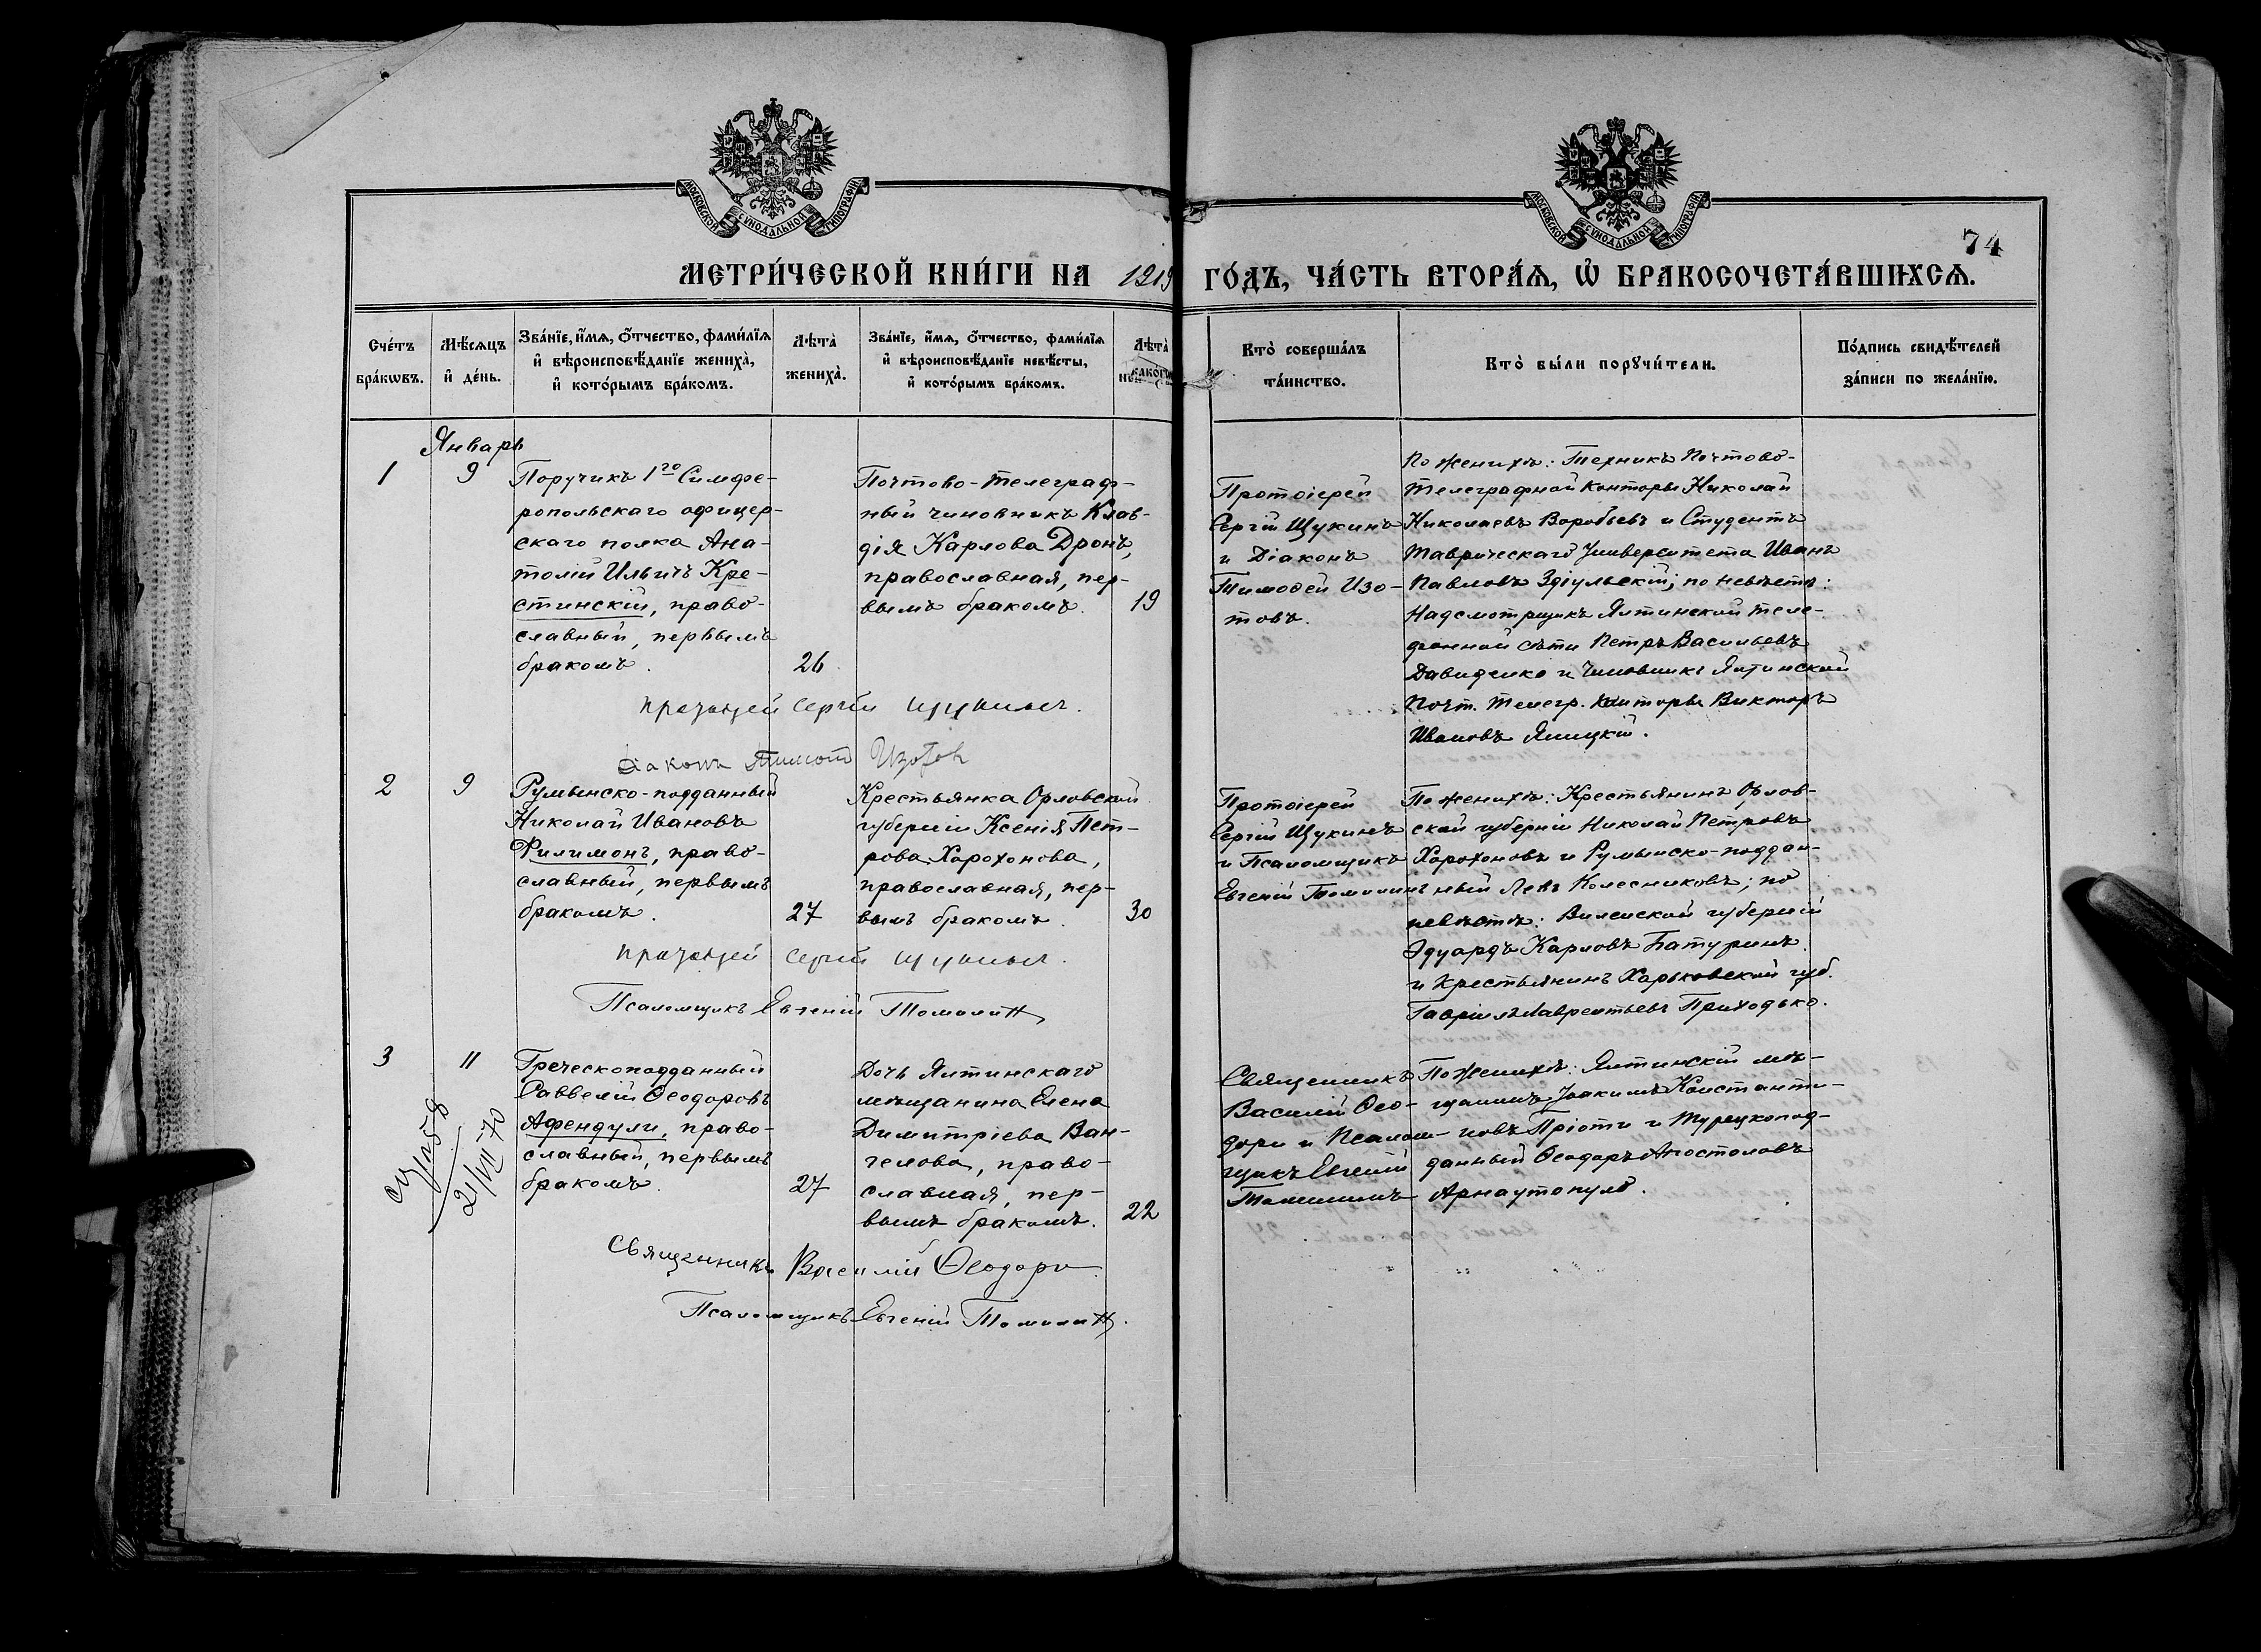 МОСКОВСКОЙ СѴНОДАЛЬНОЙ ТИПОГРАФІИ
МОСКОВСКОЙ СѴНОДАЛЬНОЙ ТИПОГРАФІИ
74
МЕТРИ́ЧЕСКОЙ КНИ́ГИ НА 1919 ГО́ДЪ, ЧА́СТЬ ВТОРА́Ѧ, Ѡ҆ БРАКОСОЧЕТА́ВШИХСѦ.
Сче́тъ
бра́кѡвъ.
Мѣ́сѧцъ
и҆ де́нь.
Зва́нїе, и҆́мѧ, о҆́тчество, фами́лїѧ
и҆ вѣроисповѣ́данїе жениха̀,
и҆ кото́рымъ бра́комъ.
Лѣта̀
жениха̀.
Зва́нїе, и҆́мѧ, о҆́тчество, фами́лїѧ
и҆ вѣроисповѣ́данїе невѣ́сты,
и҆ кото́рымъ бра́комъ.
Лѣта̀
Кто̀ соверша́лъ
та́инство.
Кто̀ бы́ли порꙋчи́тели.
По́дпись свидѣ́телей
за́писи по жела́нїю.
Январь
1
9
Поручикъ 1го Симфе-
ропольскаго офицер-
скаго полка Ана-
толій Ильичъ Кре-
стинскій, право-
славный, первымъ
бракомъ.
26
Почтово-телеграф-
ный чиновникъ Клав-
дія Карлова Дронъ,
православная, пер-
вымъ бракомъ.
19
Протоіерей
Сергій Щукинъ
и Діаконъ
Тимоѳей Изо-
товъ.
По женихѣ: Техникъ Почтово-
телеграфной Конторы Николай
Николаевъ Воробьевъ и Студентъ
Таврическаго Университета Иванъ
Павловъ Здіульскій; по невѣстѣ:
Надсмотрщикъ Ялтинской теле-
фонной сѣти Петръ Васильевъ
Давиденко и Чиновникъ Ялтинской
Почт. Телегр. Конторы Викторъ
Ивановъ Ялицкій.
Протоіерей Сергій Щукинъ.
Діаконъ Тимоѳ Изотов
2
9
Румынско-подданный
Николай Ивановъ
Филимонъ, право-
славный, первымъ
бракомъ.
27
Крестьянка Орловской
губерніи Ксенія Пет-
рова Хорохонова,
православная, пер-
вымъ бракомъ.
30
Протоіерей
Сергій Щукинъ
и Псаломщикъ
Евгеній Томилинъ
По женихѣ: Крестьянинъ Орлов-
ской губерніи Николай Петровъ
Хорохоновъ и Румынско-поддан-
ный Левъ Колесниковъ; по
невѣстѣ: Виленской губерніи
Эдуардъ Карловъ Батуринъ
и крестьянинъ Харьковской губ.
Гавріилъ Лаврентьевъ Приходько.
Протоіерей Сергій Щукинъ.
Псаломщикъ Евгеній Томилин
3
11
21/VII 70
Греческоподданный
Саввелій Ѳеодоровъ
Афендули, право-
славный, первымъ
бракомъ.
27
Дочь Ялтинскаго
мѣщанина Елена
Димитріева Ван-
гелова, право-
славная, пер-
вымъ бракомъ.
22
Священникъ
Василій Ѳео-
дори и Псалом-
щикъ Евгеній
Томилинъ
По женихѣ: Ялтинскій мѣ-
щанинъ Іоакимъ Константи-
новъ Пріоти и Турецкопод-
данный Ѳеодоръ Апостоловъ
Арнаутопуло.
Священникъ Василій Ѳеодори
Псаломщикъ Евгеній Томилин.